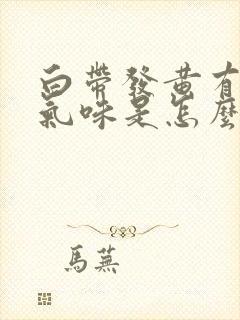 白帶發黃有
氣味是怎麼
馬蕪